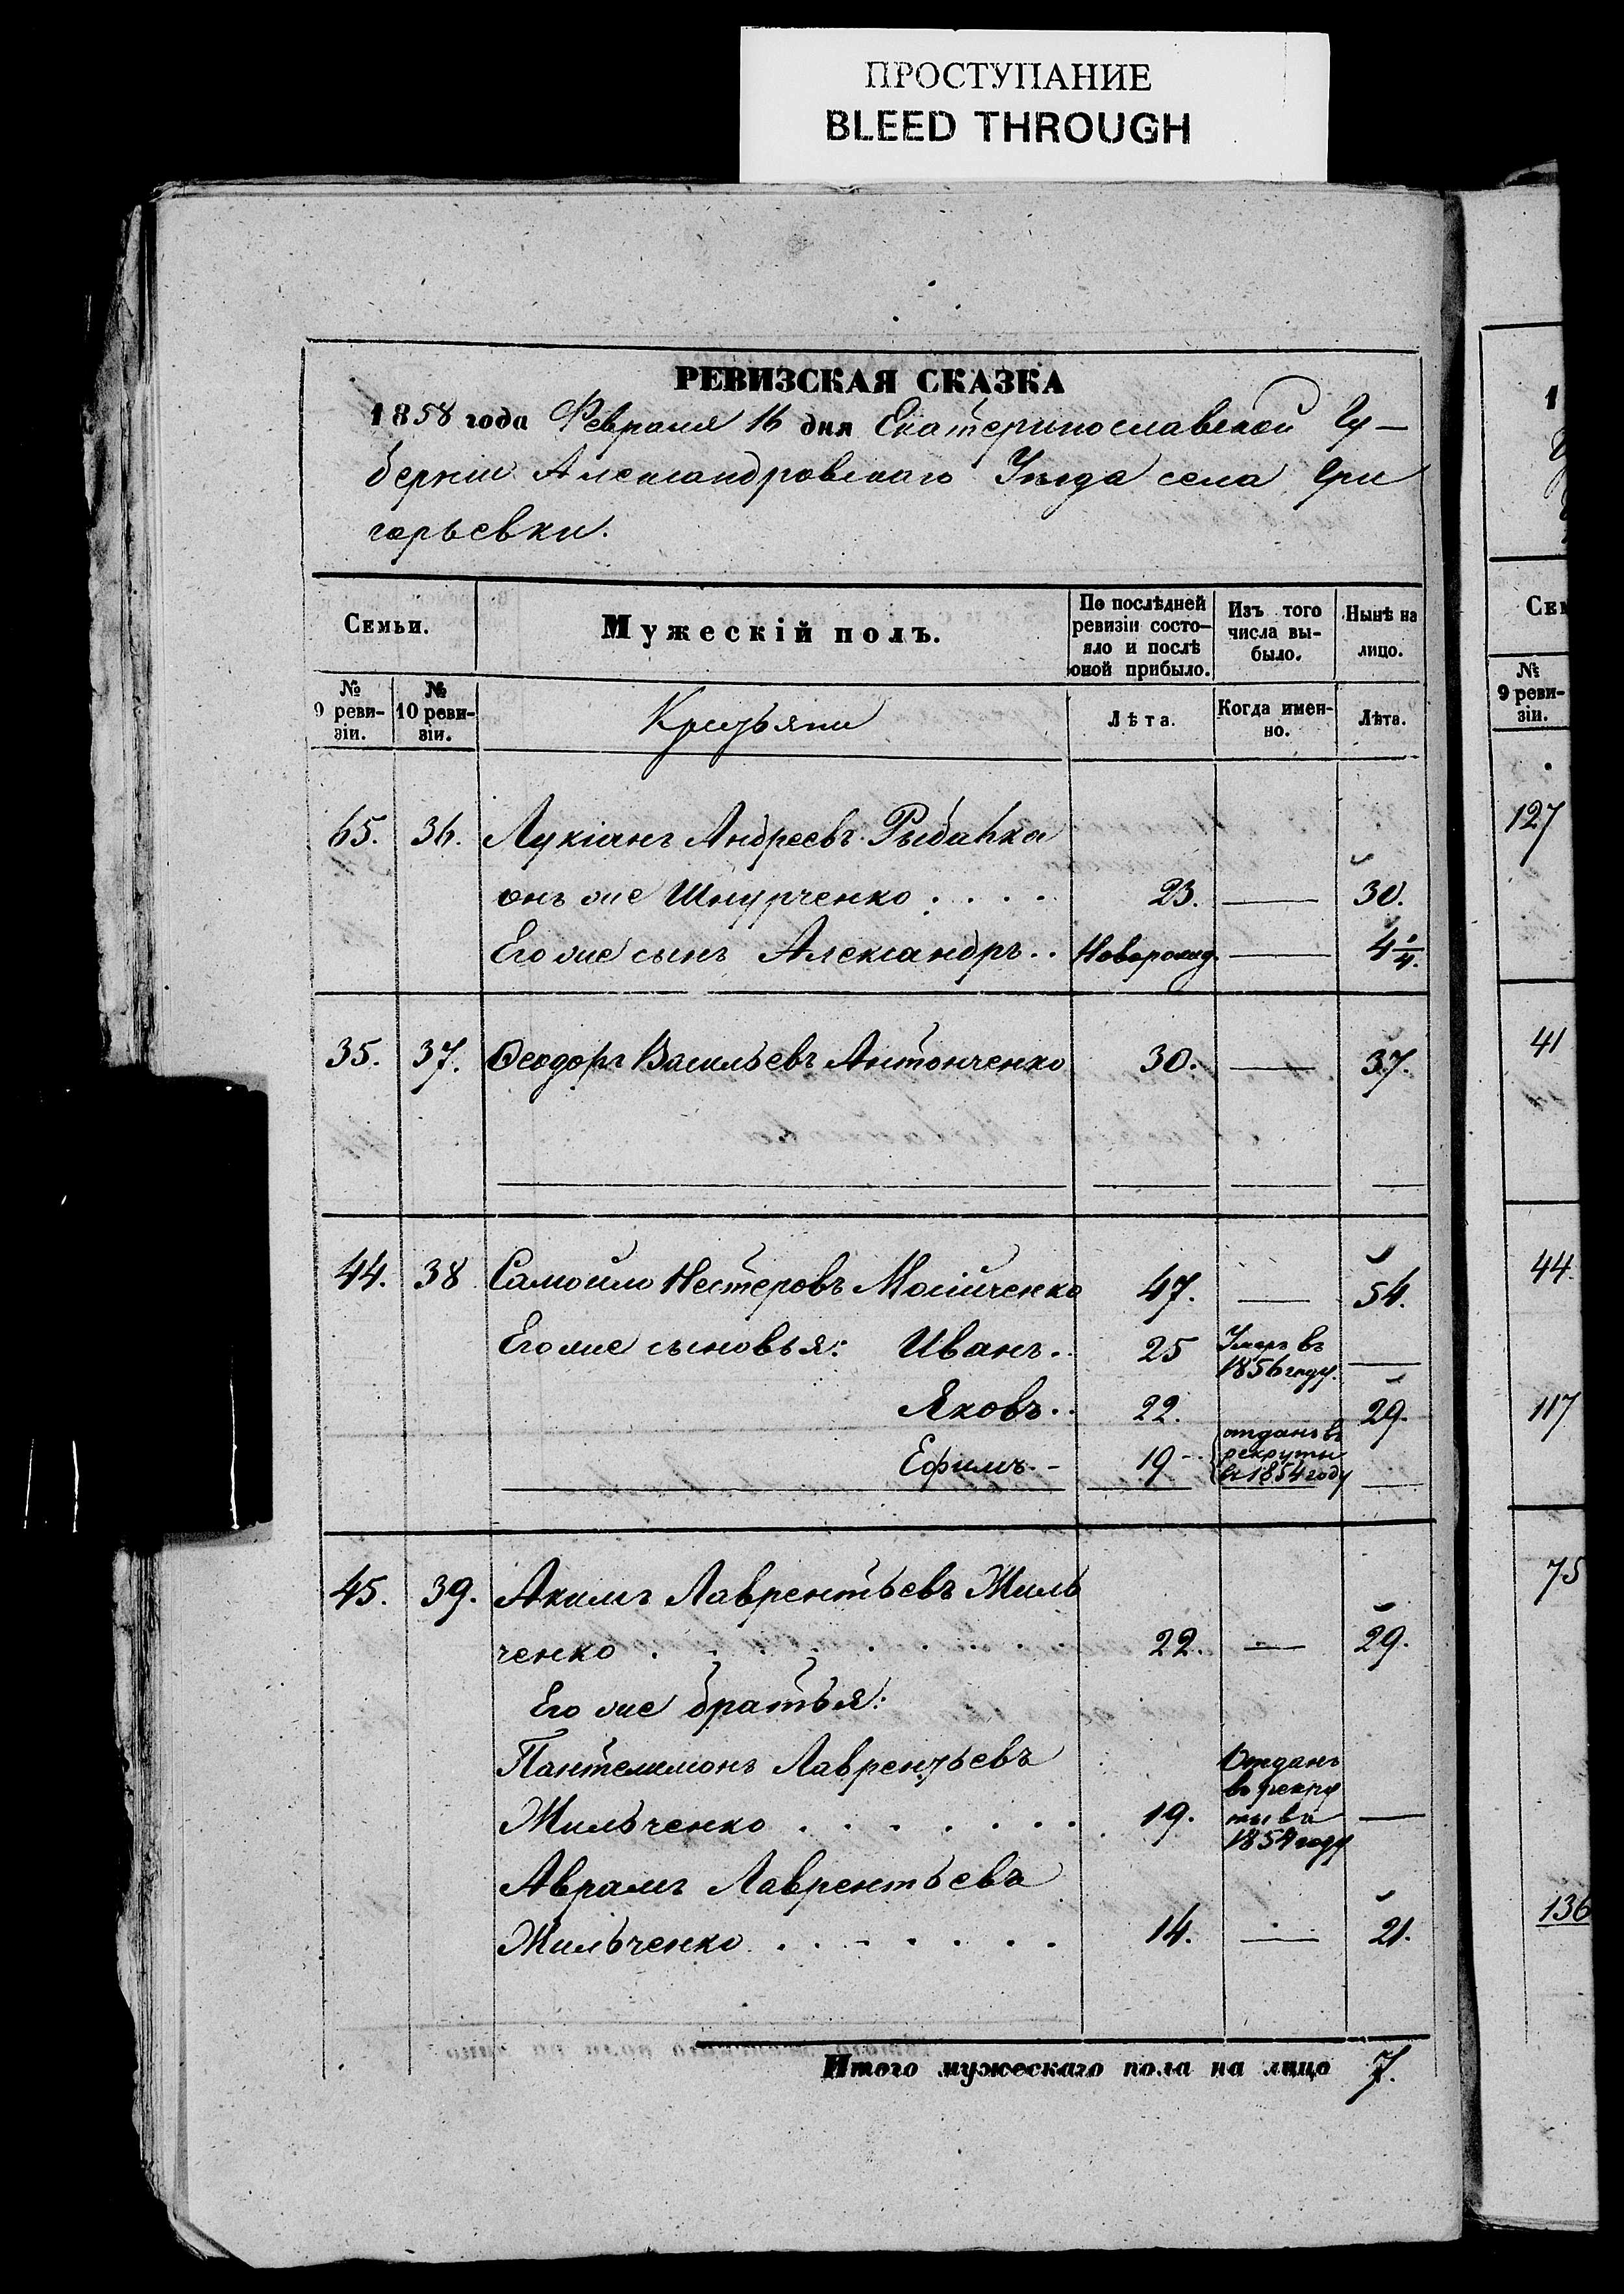 ПРОСТУПАНИЕ
BLEED THROUGH
РЕВИЗСКАЯ СКАЗКА
1858 года Февраля 16 дня Екатеринославской Гу-
берніи Александровскаго Уѣзда села Гри
горьевки.
Семьи.
Мужескій полъ.
По послѣдней
ревизіи состо-
яло и послѣ
оной прибыло.
Изъ того
числа вы-
было.
Нынѣ на
лицо.
№
9 реви-
зіи.
№
10 реви-
зіи.
Крестьяни
Лѣта.
Когда имен-
но.
Лѣта.
65. 36. Лукіанъ Андреевъ
онъ же Шнурченко . . . . 23. — 30.
Его же сынъ Александръ . . Наворожд. — 4 1/4.
35. 37. Ѳеодоръ Васильевъ Антонченко 30. — 37.
44. 38 Самойло Нестеровъ 47. — 54.
Его же сыновья: Иванъ . . 25 Умеръ въ
1856 году. —
Яковъ . . 22. 29.
Ефимъ. - 19 - отданъ въ
рекруты
въ 1854 году
45. 39. Акимъ Лаврентьевъ Миль
ченко . . . . . . . . 22. — 29.
Его же братья:
Пантелимонъ Лаврентьевъ
Мильченко . . . . . . . 19. Отданъ
в рекру
ты въ
1854 году —
Аврамъ Лаврентьевъ
Мильченко . . . . . . . 14. — 21.
Итого мужескаго пола на лицо 7.
1
Сем
№
9 реви-
зіи.
127
41
44.
117
75
136